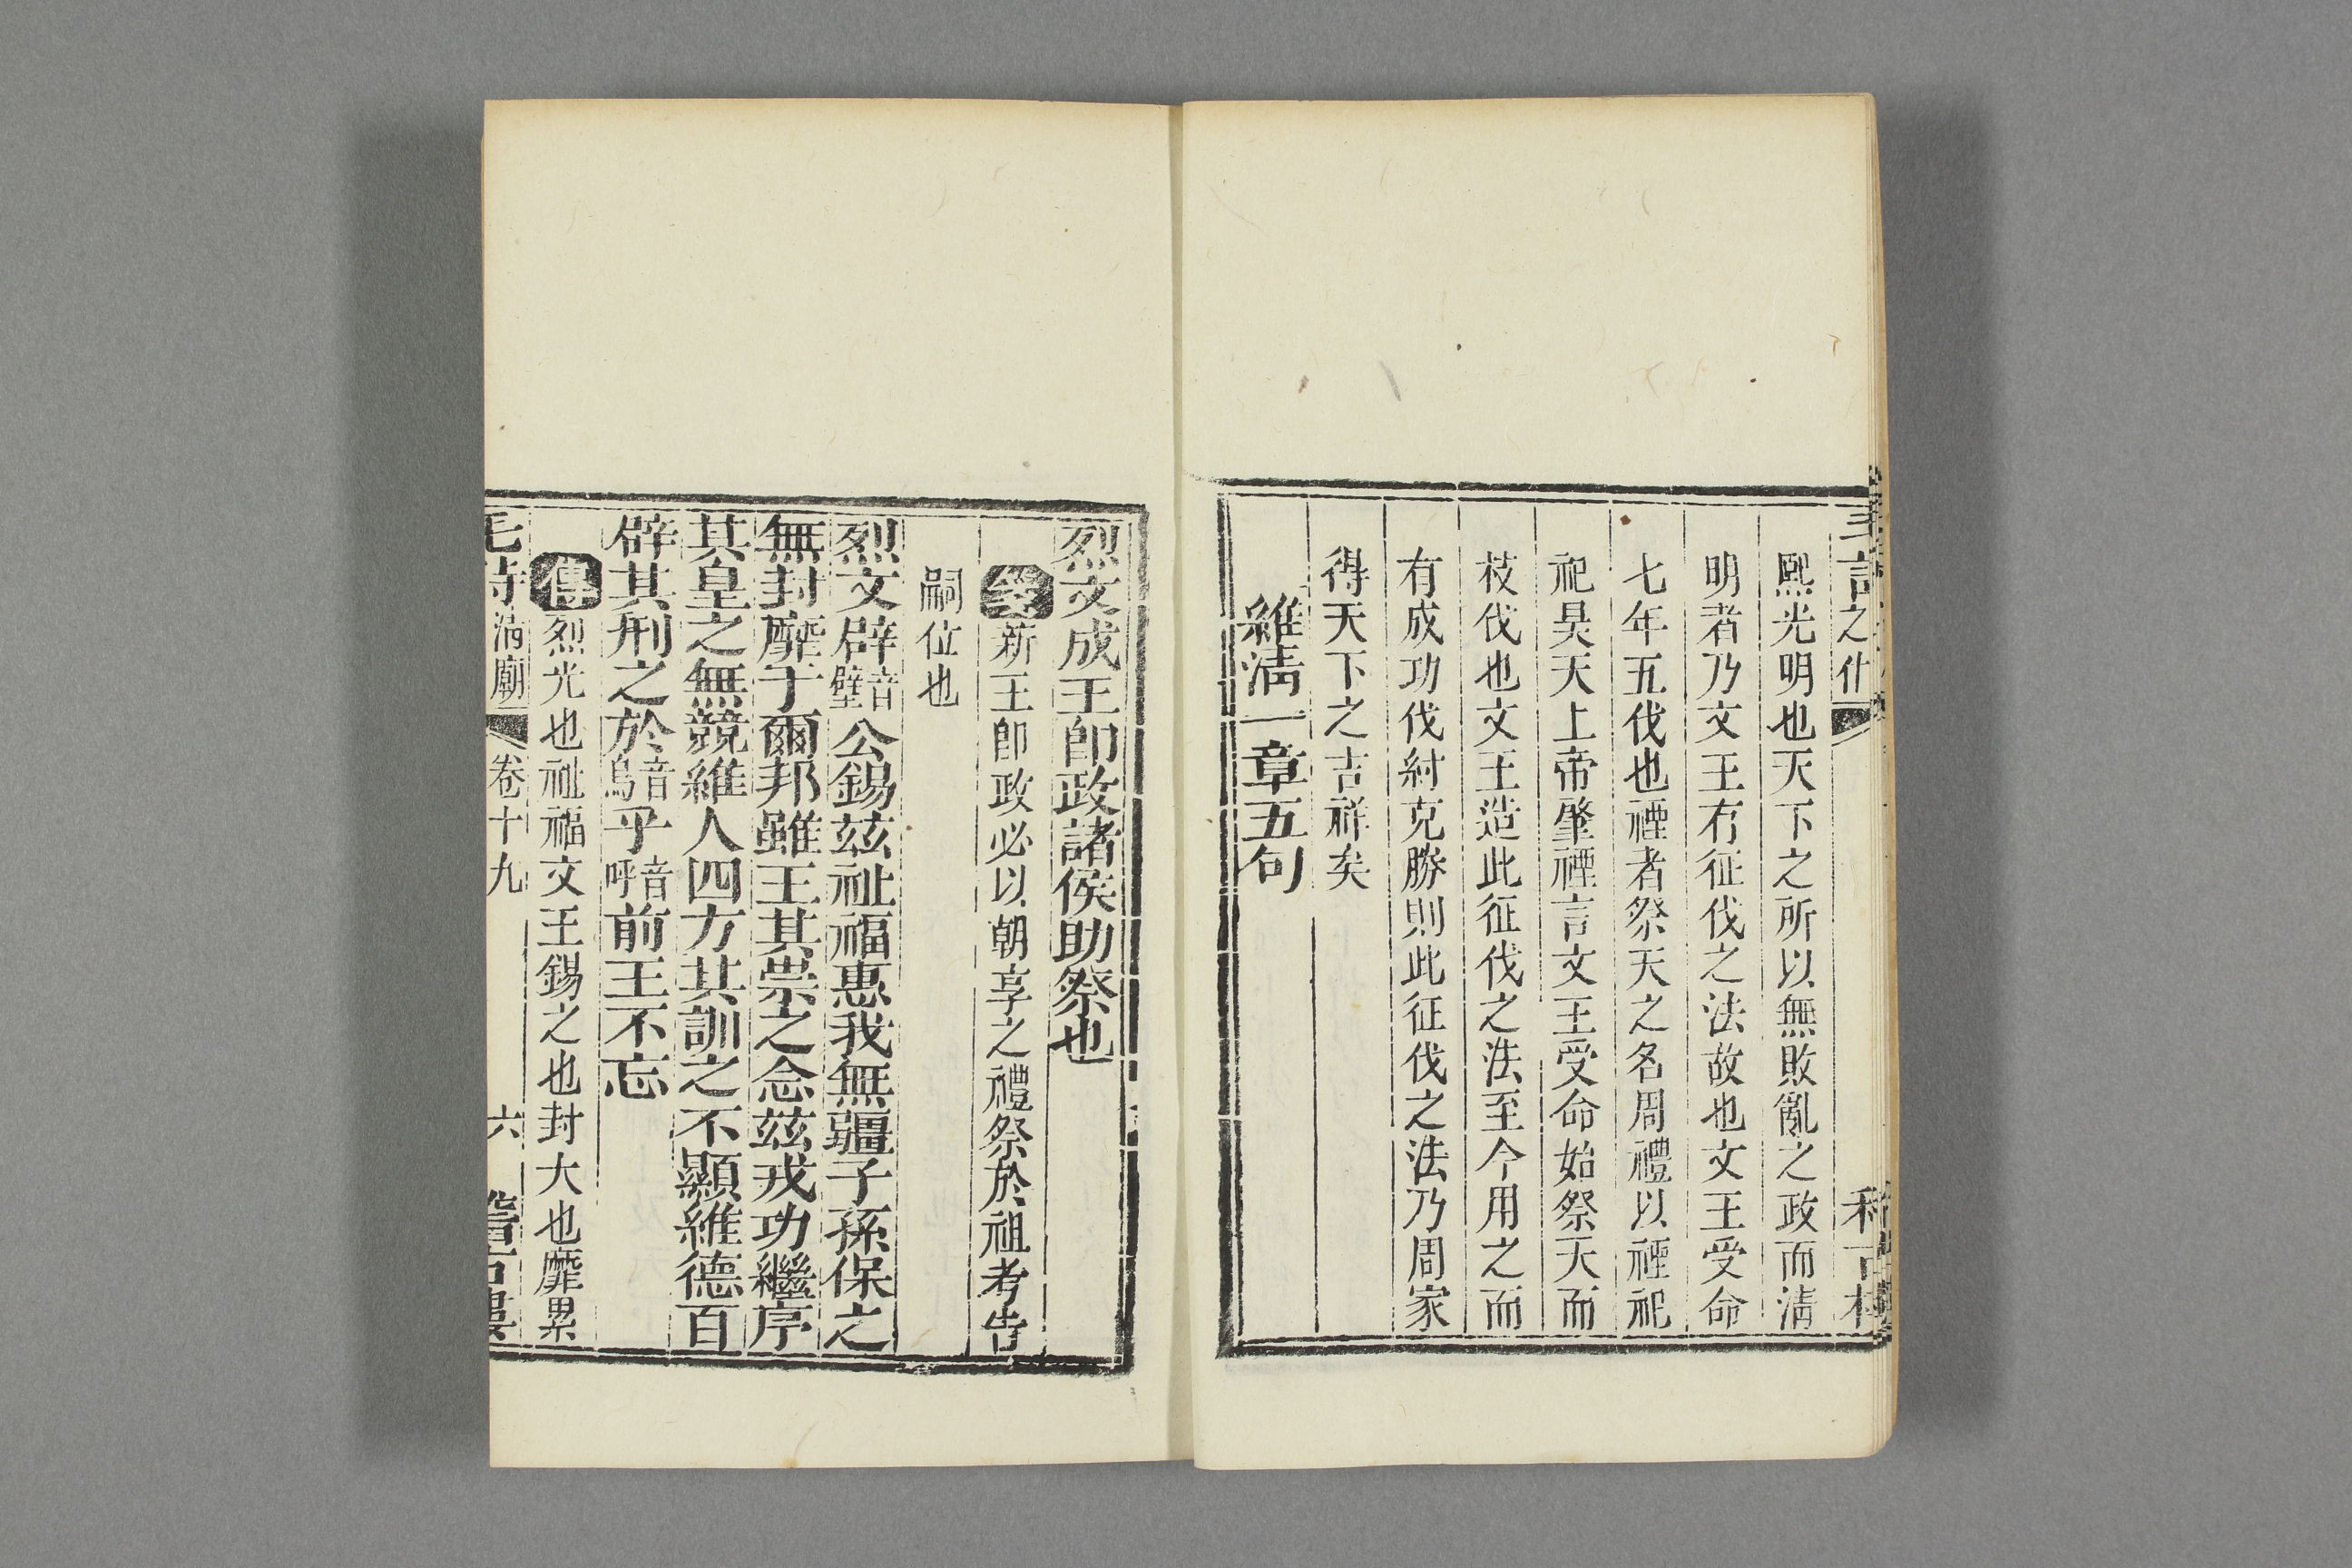 熙光明也天下之所以無敗亂之政而清
明者乃文王有征伐之法故也文王受命
七年五伐也禋者祭天之名周禮以禋祀
祀昊天上帝肇禋言文王受命始祭天而
枝伐也文王造此征伐之法至今用之而
有成功伐紂克勝則此征伐之法乃周家
得天下之吉祥矣
維淸一章五句
烈文成王卽政諸侯助祭也
箋新王卽政必以朝享之禮祭於祖考告
嗣位也
烈文辟音壁公錫茲祉福惠我無疆子孫保之
無封靡于爾邦維王其崇之念茲戎功繼序
其皇之無競維人四方其訓之不顯維德百
辟其刑之於音烏乎音呼前王不忘
傳烈光也祉福文王錫之也封大也靡累
毛詩淸廟 卷十九 六